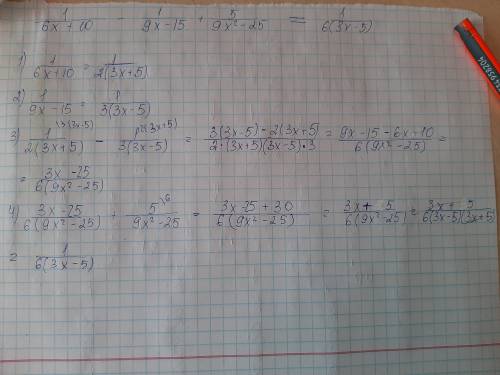 1/(6x+10) - 1/(9x-15) + 5/(9x²-25) = 1/(6(3x-5))
1) 1/(6x+10) = 1/(2(3x+5))
2) 1/(9x-15) = 1/(3(3x-5))
3) 1\3(3x-5)/(2(3x+5)) - 1\2(3x+5)/(3(3x-5)) = (3(3x-5)-2(3x+5))/(2·(3x+5)(3x-5)·3) = (9x-15-6x+10)/(6(9x²-25)) =
= (3x-25)/(6(9x²-25))
4) (3x-25)/(6(9x²-25)) + 5\6/(9x²-25) = (3x-25+30)/(6(9x²-25)) = (3x+5)/(6(9x²-25)) = (3x+5)/(6(3x-5)(3x+5))
= 1/(6(3x-5))